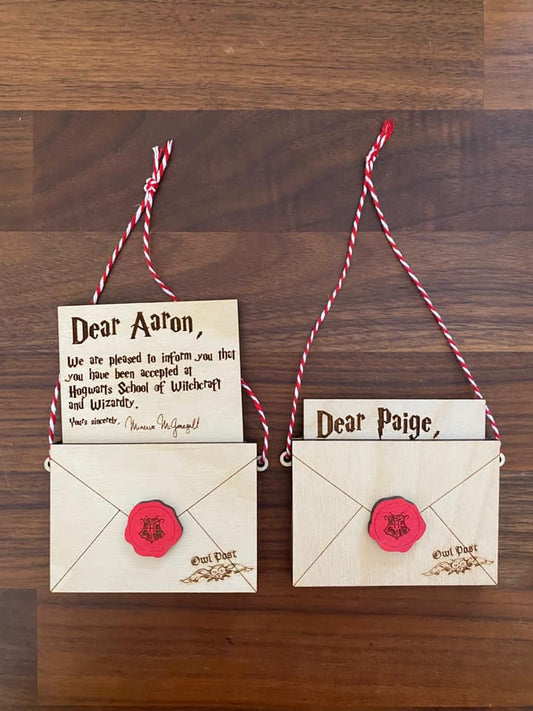 Dear Aaron,
We are pleased to inform you that
you have been accepted at
Hogwarts School of Witchcraft
and Wizardry.
Yours sincerely, Minerva McGonagall
Owl Post
Dear Paige,
Owl Post